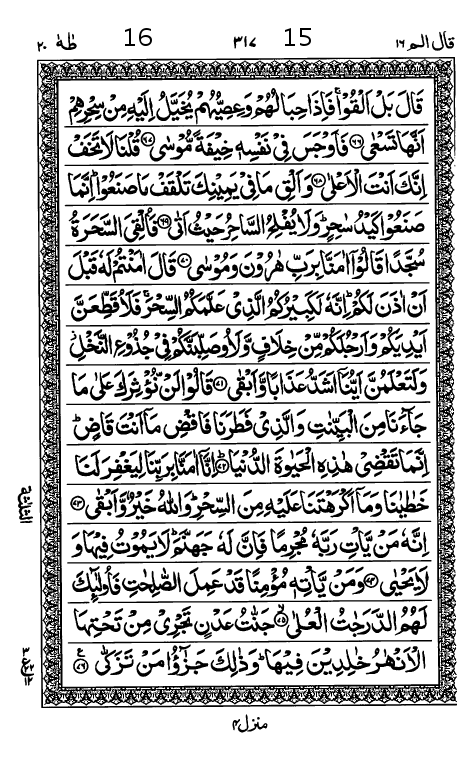 قال الم ١٦ 15 ٣١٧ 16 طٰهٰ ٢٠
قَالَ بَلْ اَلْقُوْا ۚ فَاِذَا حِبَالُهُمْ وَعِصِيُّهُمْ يُخَيَّلُ اِلَيْهِ مِنْ سِحْرِهِمْ
اَنَّهَا تَسْعٰى ﴿٦٦﴾ فَاَوْجَسَ فِيْ نَفْسِهٖ خِيْفَةً مُّوْسٰى ﴿٦٧﴾ قُلْنَا لَا تَخَفْ
اِنَّكَ اَنْتَ الْاَعْلٰى ﴿٦٨﴾ وَاَلْقِ مَا فِيْ يَمِيْنِكَ تَلْقَفْ مَا صَنَعُوْا ؕ اِنَّمَا
صَنَعُوْا كَيْدُ سٰحِرٍ ؕ وَلَا يُفْلِحُ السَّاحِرُ حَيْثُ اَتٰى ﴿٦٩﴾ فَاُلْقِيَ السَّحَرَةُ
سُجَّدًا قَالُوْۤا اٰمَنَّا بِرَبِّ هٰرُوْنَ وَمُوْسٰى ﴿٧٠﴾ قَالَ اٰمَنْتُمْ لَهٗ قَبْلَ
اَنْ اٰذَنَ لَكُمْ ؕ اِنَّهٗ لَكَبِيْرُكُمُ الَّذِيْ عَلَّمَكُمُ السِّحْرَ ۚ فَلَاُقَطِّعَنَّ
اَيْدِيَكُمْ وَاَرْجُلَكُمْ مِّنْ خِلَافٍ وَّلَاُوصَلِّبَنَّكُمْ فِيْ جُذُوْعِ النَّخْلِ ؗ
وَلَتَعْلَمُنَّ اَيُّنَاۤ اَشَدُّ عَذَابًا وَّاَبْقٰى ﴿٧١﴾ قَالُوْا لَنْ نُّؤْثِرَكَ عَلٰى مَا
جَآءَنَا مِنَ الْبَيِّنٰتِ وَالَّذِيْ فَطَرَنَا فَاقْضِ مَاۤ اَنْتَ قَاضٍ ؕ
اِنَّمَا تَقْضِيْ هٰذِهِ الْحَيٰوةَ الدُّنْيَا ﴿٧٢﴾ اِنَّاۤ اٰمَنَّا بِرَبِّنَا لِيَغْفِرَ لَنَا
خَطٰيٰنَا وَمَاۤ اَكْرَهْتَنَا عَلَيْهِ مِنَ السِّحْرِ ؕ وَاللّٰهُ خَيْرٌ وَّاَبْقٰى ﴿٧٣﴾
اِنَّهٗ مَنْ يَّاْتِ رَبَّهٗ مُجْرِمًا فَاِنَّ لَهٗ جَهَنَّمَ ؕ لَا يَمُوْتُ فِيْهَا وَ
لَا يَحْيٰى ﴿٧٤﴾ وَمَنْ يَّاْتِهٖ مُؤْمِنًا قَدْ عَمِلَ الصّٰلِحٰتِ فَاُولٰٓئِكَ
لَهُمُ الدَّرَجٰتُ الْعُلٰى ﴿٧٥﴾ جَنّٰتُ عَدْنٍ تَجْرِيْ مِنْ تَحْتِهَا
الْاَنْهٰرُ خٰلِدِيْنَ فِيْهَا ؕ وَذٰلِكَ جَزٰٓؤُا مَنْ تَزَكّٰى ﴿٧٦﴾ ع
الثلثة
منزل ٤